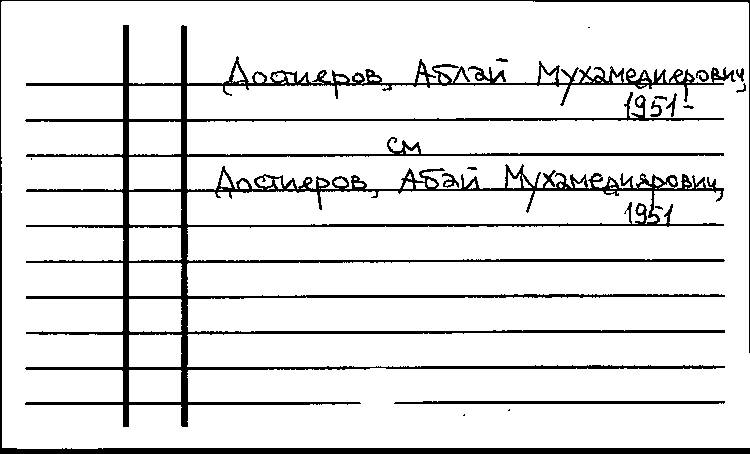 Достиеров, Аблай Мухамедиерович,
1951-
см
Достиеров, Абай Мухамедиярович,
1951